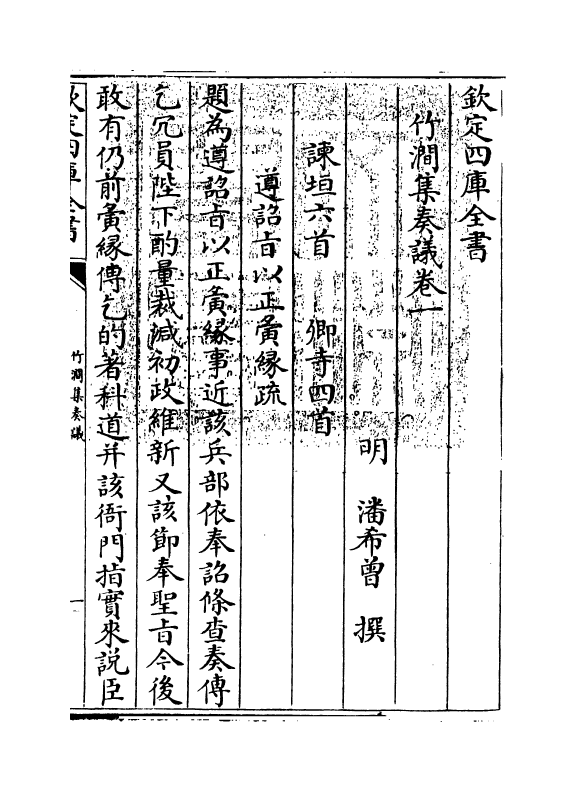 欽定四庫全書
竹澗集奏議卷一
明 潘希曾 撰
諫垣六首 卿寺四首
遵詔旨以正夤緣疏
題為遵詔旨以正夤緣事近該兵部依奉詔條查奏傳
乞冗員陛下酌量裁減初政維新又該節奉聖旨今後
敢有仍前夤緣傳乞的著科道并該衙門指實來說臣
欽定四庫全書
竹澗集奏議
一